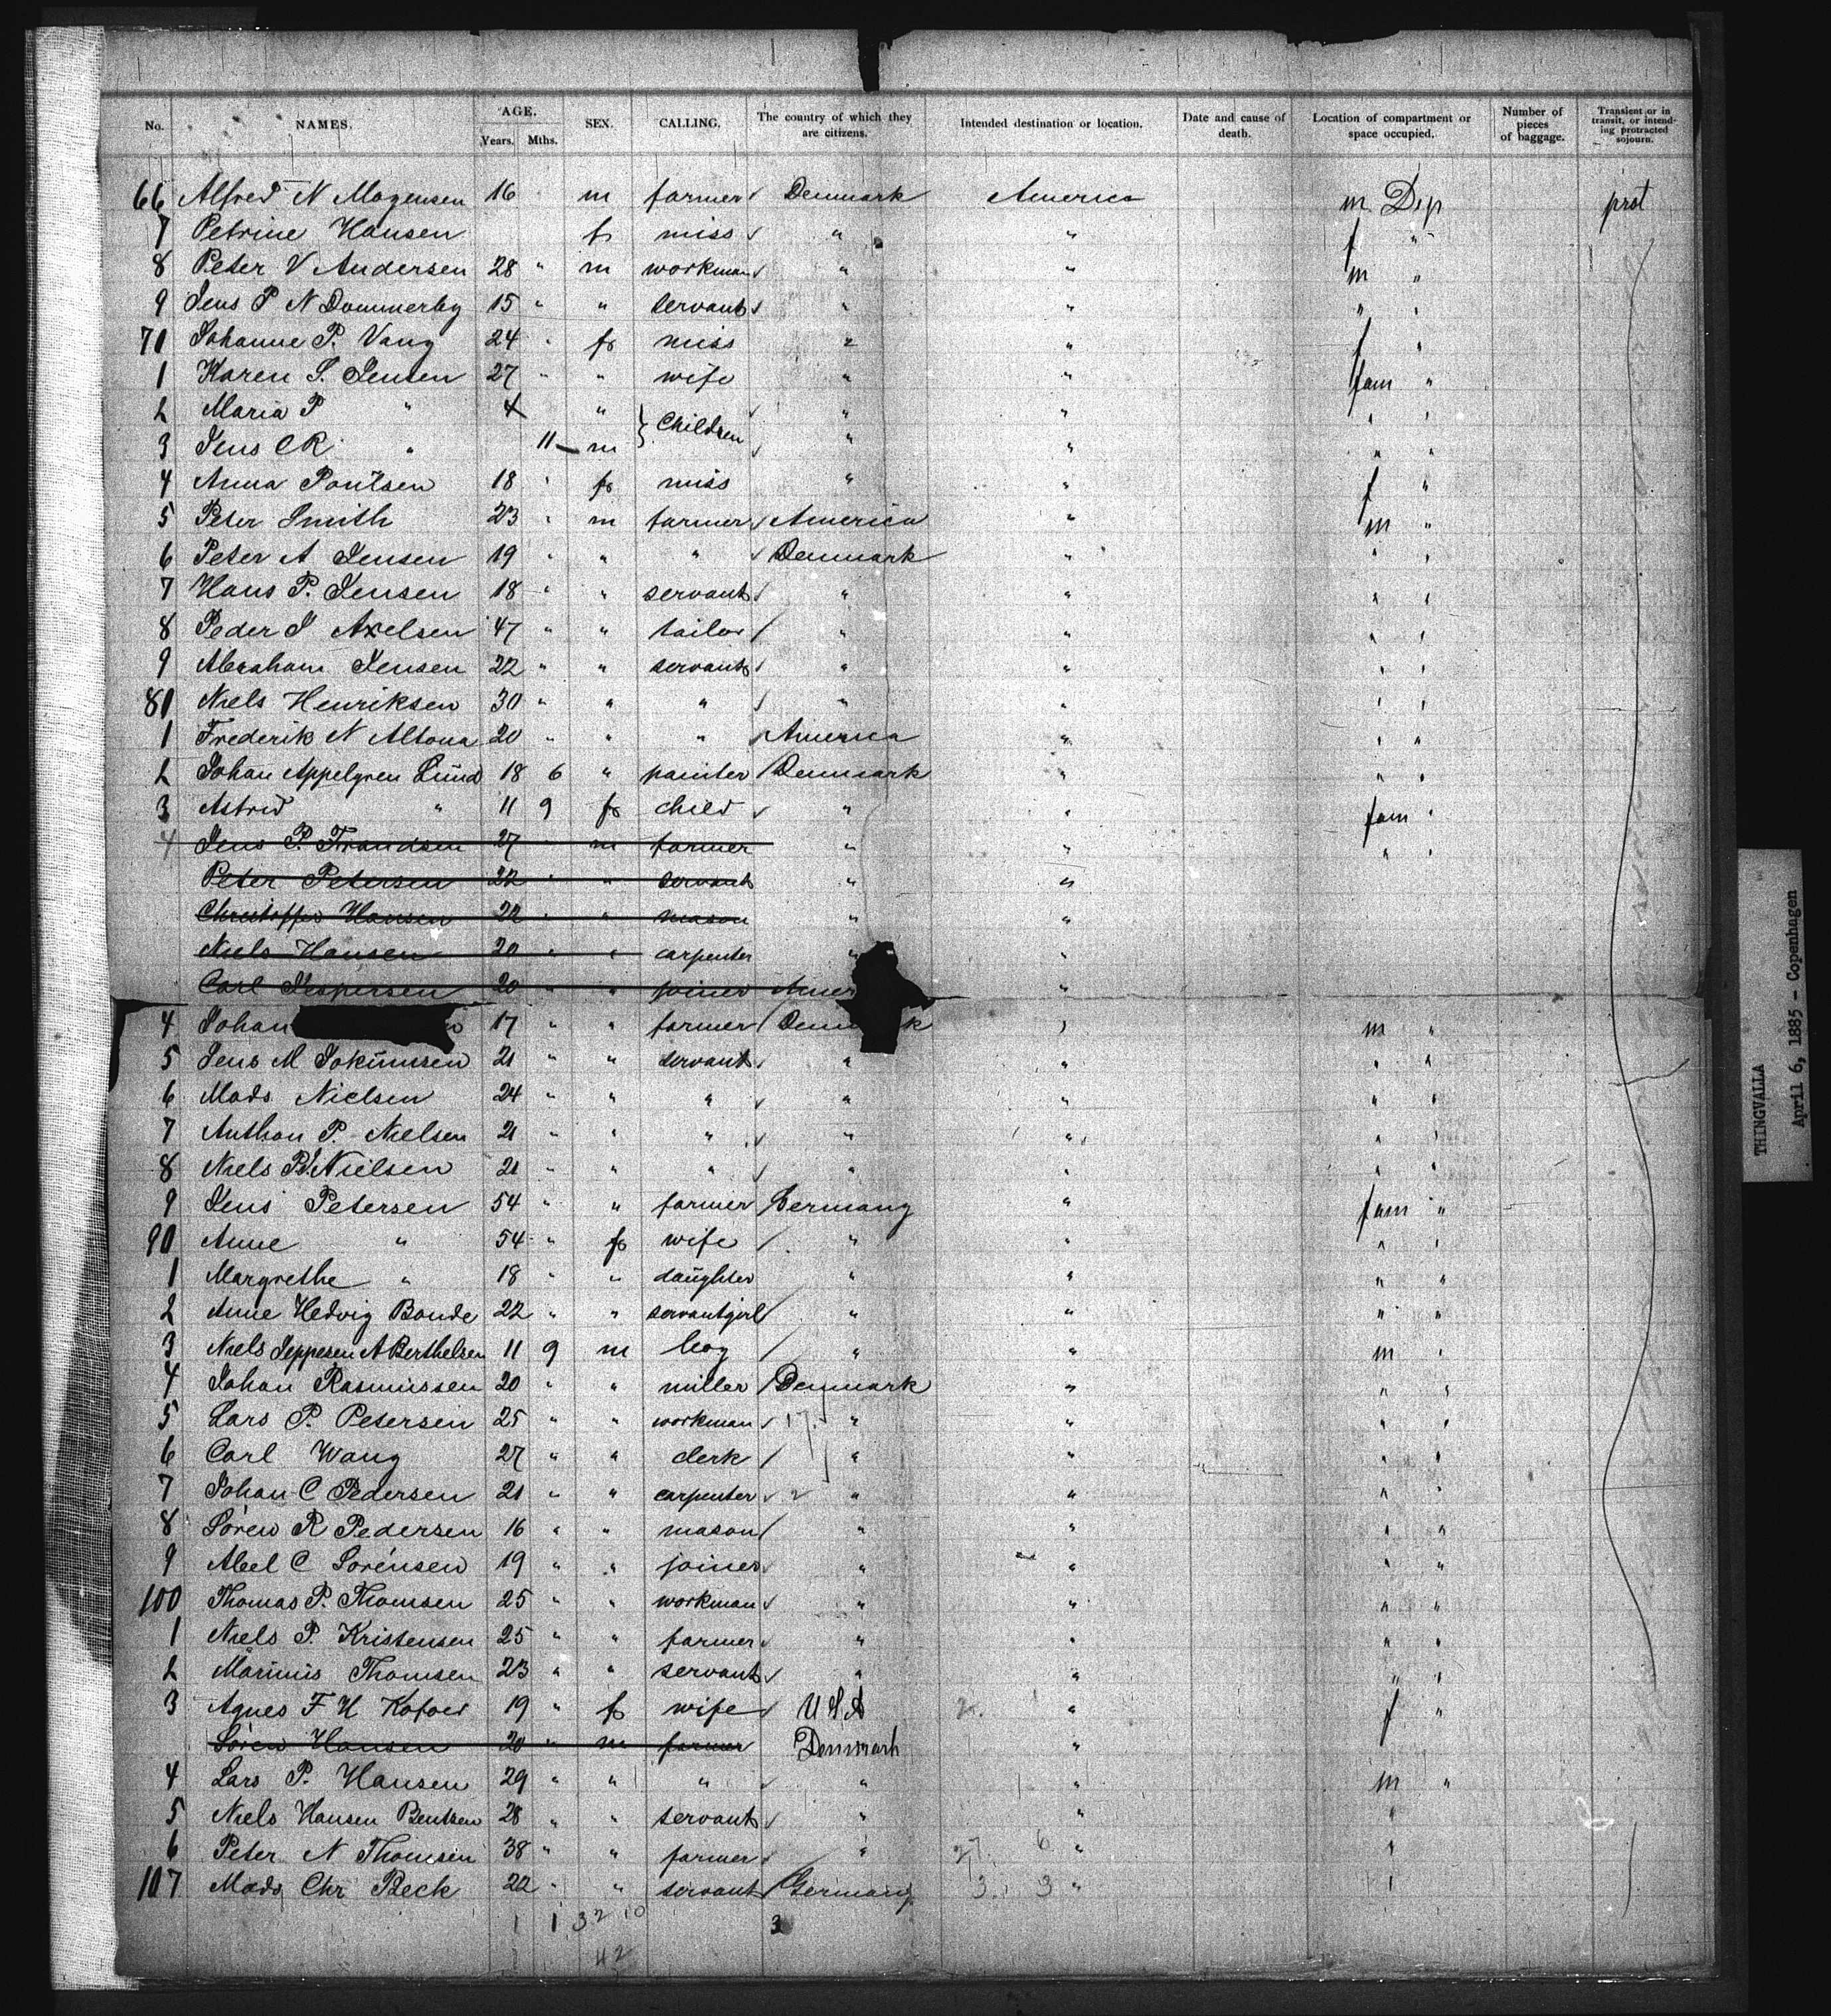 No. NAMES. AGE. Years. Mths. SEX. CALLING. The country of which they are citizens. Intended destination or location. Date and cause of death. Location of compartment or space occupied. Number of pieces of baggage. Transient or in transit, or intending protracted sojourn.
66 Alfred N Mogensen 16 m farmer Denmark America m Dep prot
7 Petrine Hansen f miss " " f "
8 Peter V Andersen 28 " m workman " " m "
9 Jens P N Dommerby 15 " " servant " " " "
70 Johanne P. Vang 24 " f miss " " f "
1 Karen S. Jensen 27 " " wife " " fam "
2 Maria P " 4 " } Children " " " "
3 Jens C R " 11 m " " " "
4 Anna Poulsen 18 " f miss " " f "
5 Peter Smith 23 " m farmer America " m "
6 Peter A Jensen 19 " " " Denmark " " "
7 Hans P. Jensen 18 " " servant " " " "
8 Peder J Axelsen 47 " " tailor " " " "
9 Abraham Jensen 22 " " servant " " " "
80 Niels Henriksen 30 " " " " " " "
1 Frederik N Altona 20 " " " America " " "
2 Johan Appelgren Lund 18 6 " painter Denmark " " "
3 Astrid " 11 9 f child " " fam "
4 Jens P. Frandsen 27 " m farmer " " " "
Peter Petersen 22 " " servant " "
Christoffer Hansen 22 " " mason " "
Niels Hansen 20 " " carpenter " "
Carl Jespersen 20 " " joiner Amer "
4 Johan 17 " " farmer Denm k " m "
5 Jens M Jokumsen 21 " " servant " " " "
6 Mads Nielsen 24 " " " " " " "
7 Anthon P. Nielsen 21 " " " " " " "
8 Niels P. Nielsen 21 " " " " " " "
9 Jens Petersen 54 " " farmer Germany " fam "
90 Anne " 54 " f wife " " " "
1 Margrethe " 18 " " daughter " " " "
2 Anne Hedvig Bonde 22 " " servantgirl " " " "
3 Niels Jeppesen A Berthelsen 11 9 m boy " " m "
4 Johan Rasmussen 20 " " miller Denmark " " "
5 Lars P. Petersen 25 " " workman " " " "
6 Carl Wang 27 " " clerk " " " "
7 Johan C Pedersen 21 " " carpenter " " " "
8 Sören R Pedersen 16 " " mason " " " "
9 Abel C Sorensen 19 " " joiner " " " "
100 Thomas P. Thomsen 25 " " workman " " " "
1 Niels P. Kristensen 25 " " farmer " " " "
2 Marinus Thomsen 23 " " servant " " " "
3 Agnes F H Kofoed 19 " f wife U S A " f "
Sören Hansen 20 " m farmer Denmark "
4 Lars P. Hansen 29 " " " " " m "
5 Niels Hansen Bentsen 28 " " servant " " "
6 Peter N Thomsen 38 " " farmer " " "
107 Mads Chr Beck 22 " " servant Germany 3 3 " "
1 1 32 10 3
42
THINGVALLA
April 6, 1885 - Copenhagen